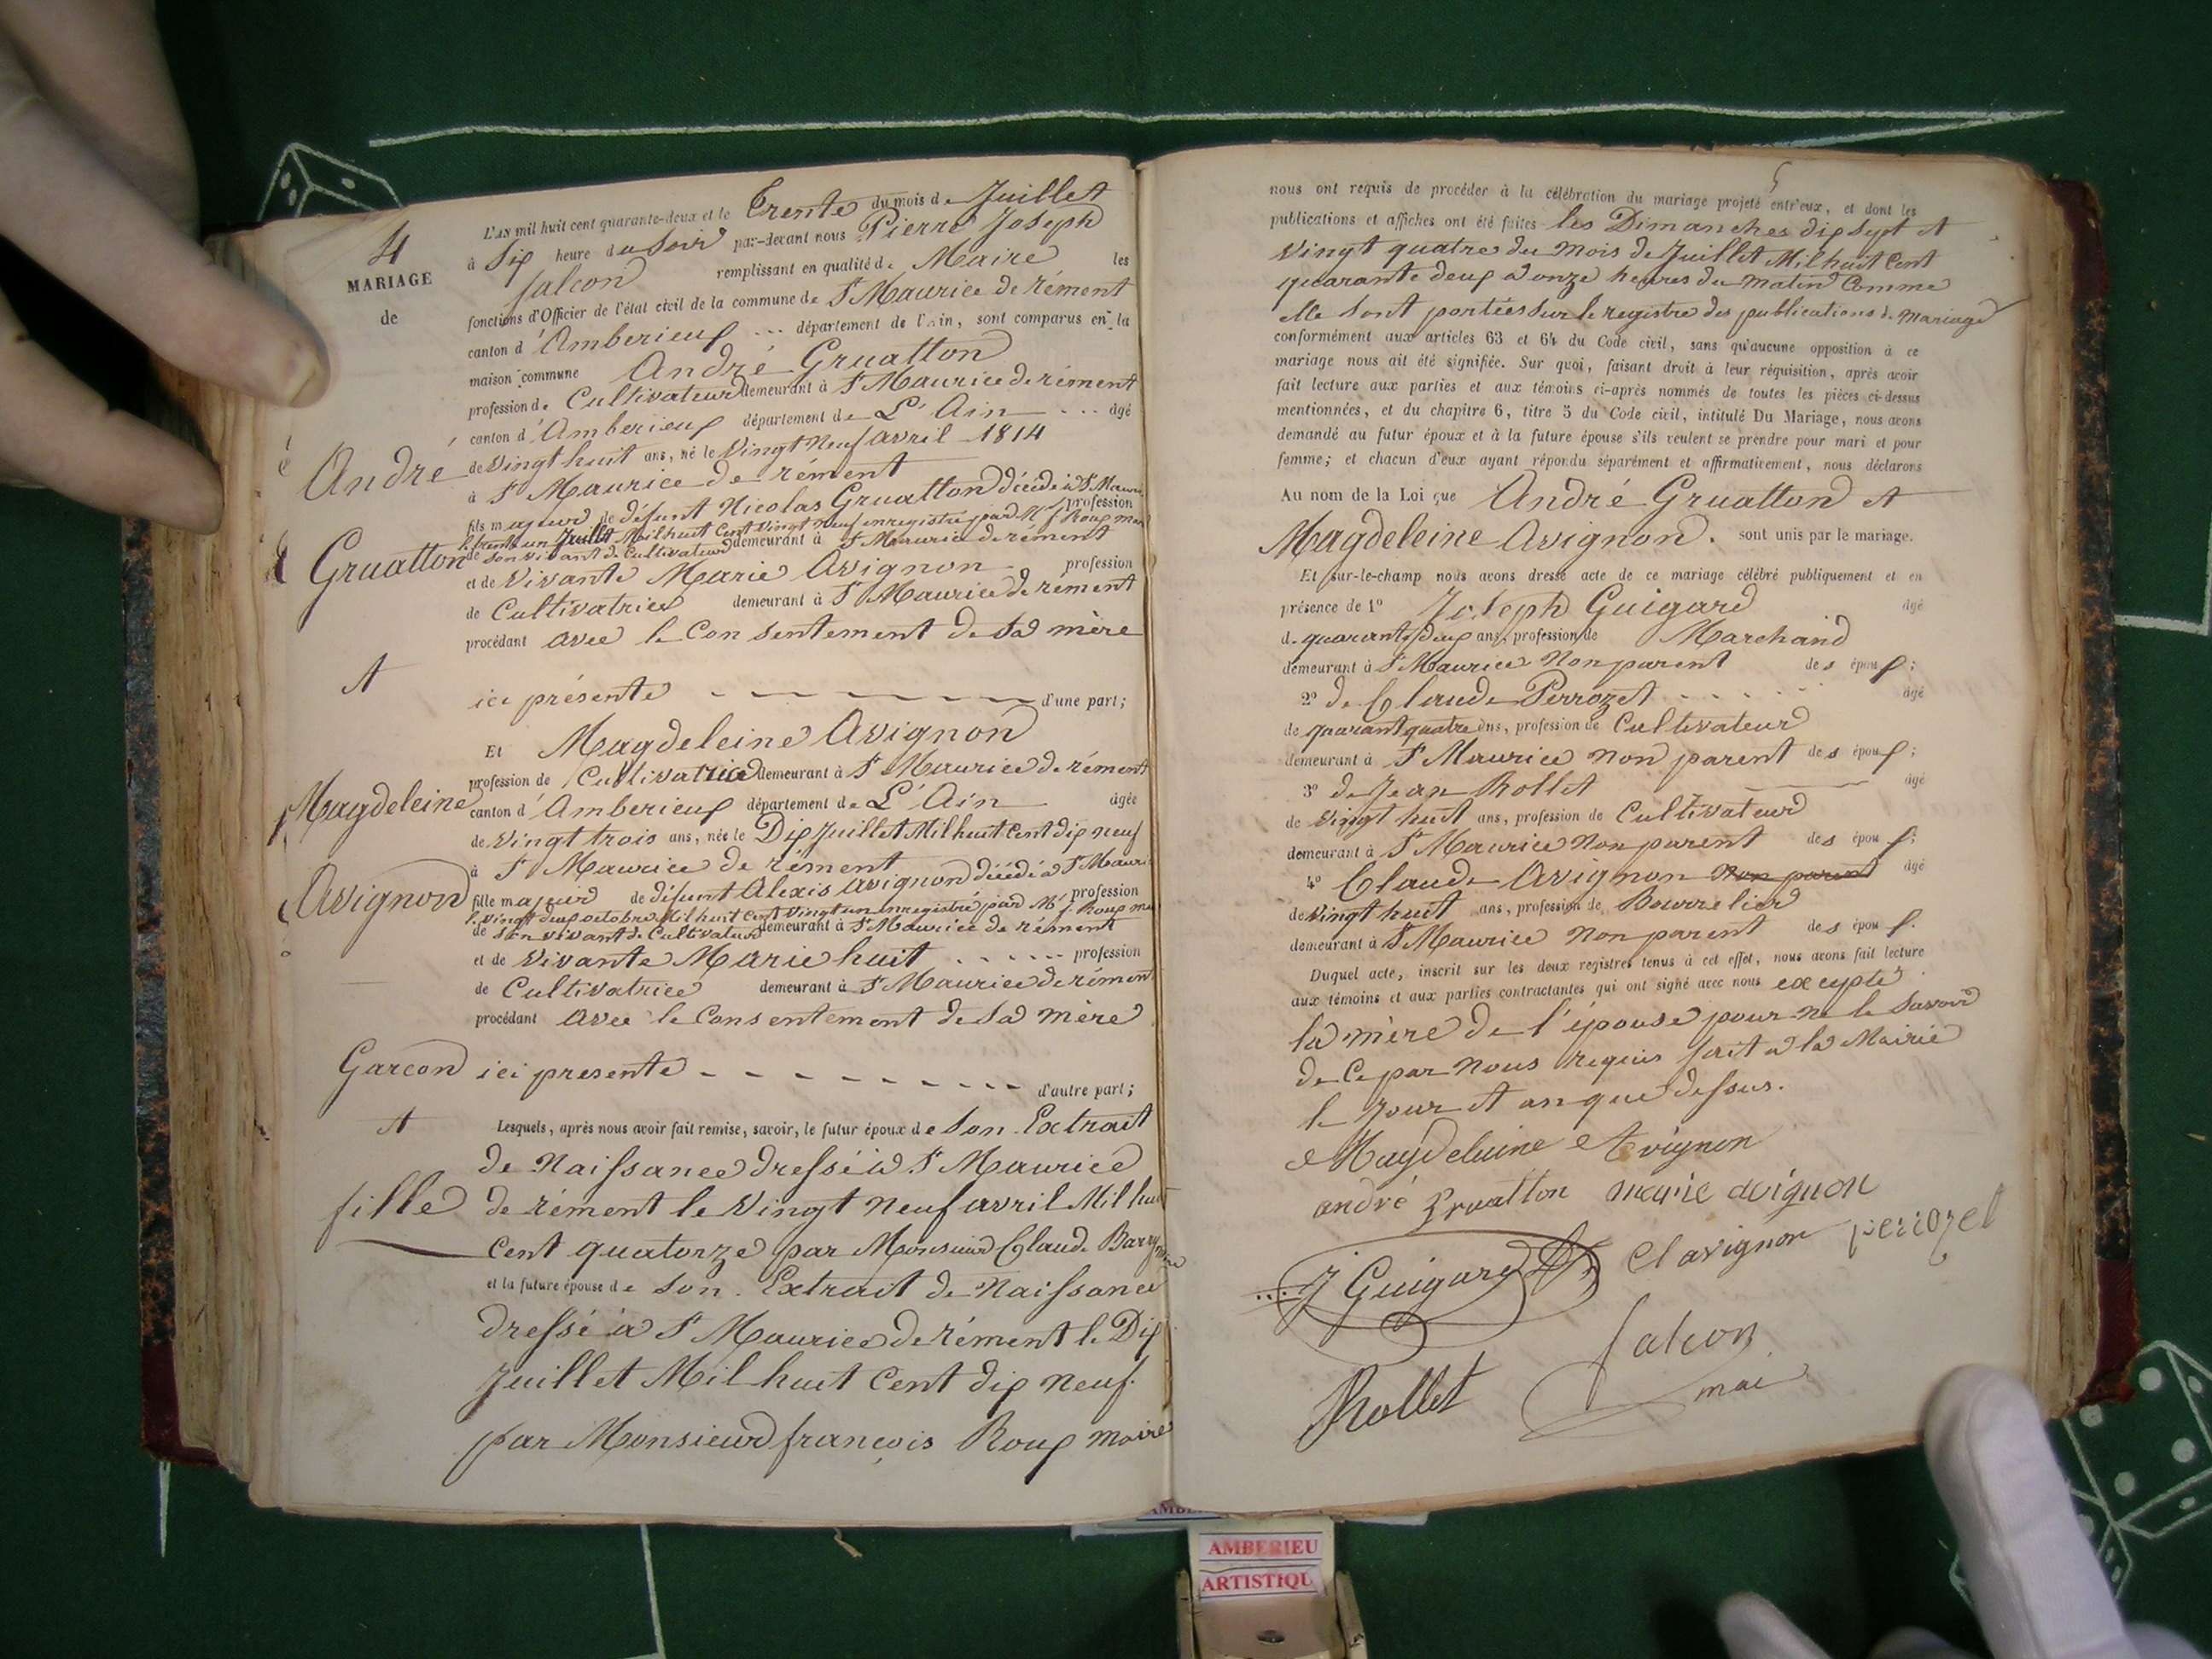 4
MARIAGE
de
André
Gruatton
et
Magdeleine
Avignon
Garcon
et
fille
L'AN mil huit cent quarante-deux et le Trente du mois de Juillet
à Six heure du Soir par-devant nous Pierre Joseph
falcon remplissant en qualité de Maire les
fonctions d'Officier de l'état civil de la commune de St Maurice de rément
canton d'Amberieux département de l'Ain, sont comparus en la
maison commune André Gruatton
profession de Cultivateur demeurant à St Maurice de rément
canton d'Amberieux département de L'Ain âgé
de Vingt huit ans, né le Vingt Neuf avril 1814
à St Maurice de rément
fils majeur de défunt Nicolas Gruatton décédé à St Maurice profession
le trente un Juillet Mil huit Cent Vingt neuf enregistré par Mr f. Roux maire
de Son vivant de Cultivateur demeurant à St Maurice de rément
et de Vivante Marie Avignon profession
de Cultivatrice demeurant à St Maurice de rément
procédant avec le Consentement de Sa mère
ici présente d'une part;
Et Magdeleine Avignon
profession de Cultivatrice demeurant à St Maurice de rément
canton d'Amberieux département de L'Ain âgée
de Vingt trois ans, née le Dix Juillet Mil huit Cent dix neuf
à St Maurice de rément
fille majeur de défunt Alexis Avignon décédé à St Maurice profession
le Vingt deux octobre Mil huit Cent Vingt un enregistré par Mr f. Roux maire
de Son vivant de Cultivateur demeurant à St Maurice de rément
et de Vivante Marie huit profession
de Cultivatrice demeurant à St Maurice de rément
procédant avec le Consentement de Sa mère
ici presente d'autre part;
Lesquels, après nous avoir fait remise, savoir, le futur époux de Son Extrait
de Naissance dressé à St Maurice
de rément le Vingt Neuf avril Mil huit
Cent quatorze par Monsieur Claude Barry maire
et la future épouse de Son Extrait de Naissance
dressé à St Maurice de rément le Dix
Juillet Mil huit Cent dix neuf
par Monsieur françois Roux maire
5
nous ont requis de procéder à la célébration du mariage projeté entr'eux, et dont les
publications et affiches ont été faites les Dimanches dix Sept et
Vingt quatre du Mois de Juillet Mil huit Cent
quarante deux à onze heures du Matin Comme
elle Sont portées Sur le registre des publications de Mariage
conformément aux articles 63 et 64 du Code civil, sans qu'aucune opposition à ce
mariage nous ait été signifiée. Sur quoi, faisant droit à leur réquisition, après avoir
fait lecture aux parties et aux témoins ci-après nommés de toutes les pièces ci-dessus
mentionnées, et du chapitre 6, titre 5 du Code civil, intitulé Du Mariage, nous avons
demandé au futur époux et à la future épouse s'ils veulent se prendre pour mari et pour
femme; et chacun d'eux ayant répondu séparément et affirmativement, nous déclarons
Au nom de la Loi que André Gruatton et
Magdeleine Avignon. sont unis par le mariage.
Et sur-le-champ nous avons dressé acte de ce mariage célébré publiquement et en
présence de 1º Joseph Guigard âgé
de quarante deux ans, profession de Marchand
demeurant à St Maurice Non parent des époux;
2º de Claude Perrozet âgé
de quarant quatre ans, profession de Cultivateur
demeurant à St Maurice non parent des époux;
3º de Jean Rollet âgé
de Vingt huit ans, profession de Cultivateur
demeurant à St Maurice Non parent des époux;
4º Claude Avignon Non parent âgé
de Vingt huit ans, profession de Bourrelier
demeurant à St Maurice Non parent des époux.
Duquel acte, inscrit sur les deux registres tenus à cet effet, nous avons fait lecture
aux témoins et aux parties contractantes qui ont signé avec nous excepté
la mère de l'épouse pour ne le Savoir
de Ce par Nous requis fait à la Mairie
le Jour et an que dessus.
Magdeleine Avignon
andré gruatton marie avignon
J Guigard Cl avignon perrozet
Rollet falcon
mai
AMBERIEU
ARTISTIQU